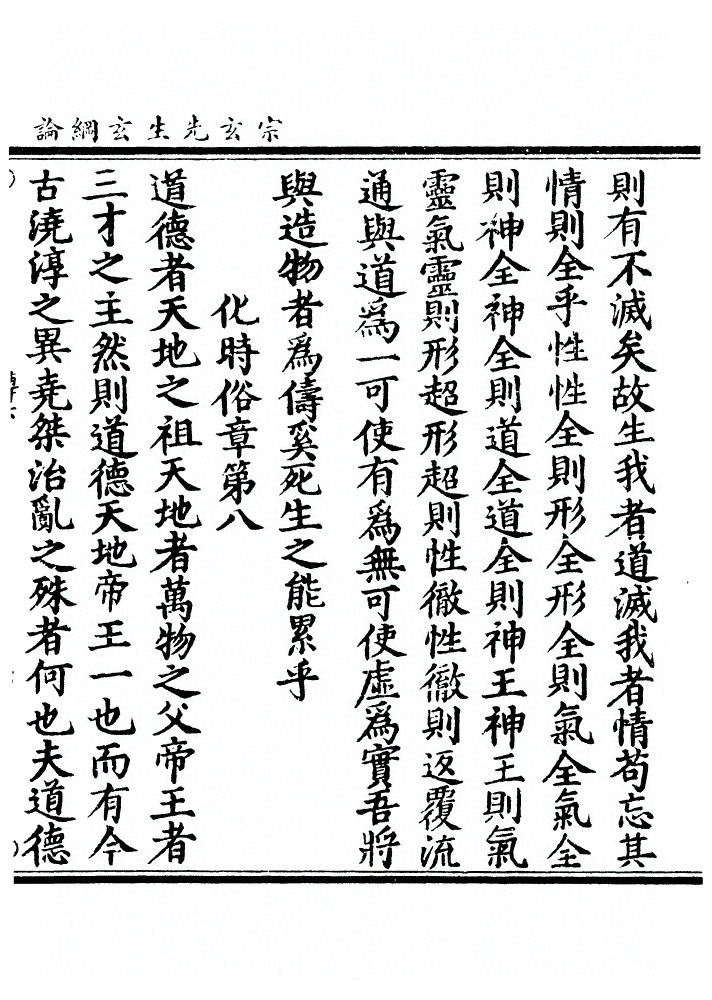 宗玄先生玄綱論
則有不滅矣故生我者道滅我者情苟忘其
情則全乎性性全則形全形全則氣全氣全
則神全神全則道全道全則神王神王則氣
靈氣靈則形超形超則性徹性徹則返覆流
通與道爲一可使有爲無可使虛爲實吾將
與造物者爲儔奚死生之能累乎
化時俗章第八
道德者天地之祖天地者萬物之父帝王者
三才之主然則道德天地帝王一也而有今
古澆淳之異堯桀治亂之殊者何也夫道德